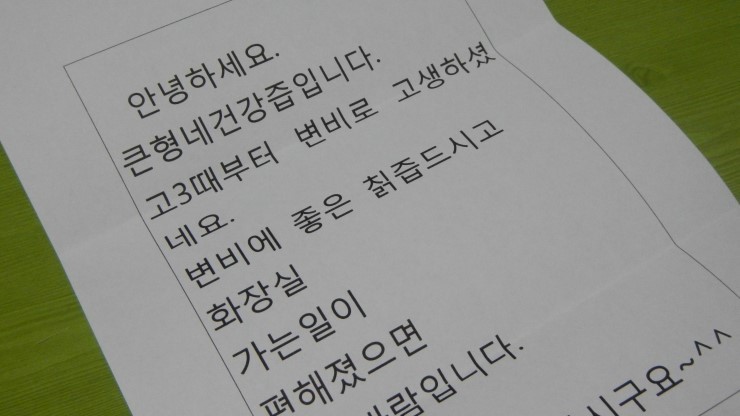 안녕하세요.
큰형네건강즙입니다.
고3때부터 변비로 고생하셨
네요.
변비에 좋은 칡즙드시고
화장실
가는일이
편해졌으면
바람입니다.
시구요~^^